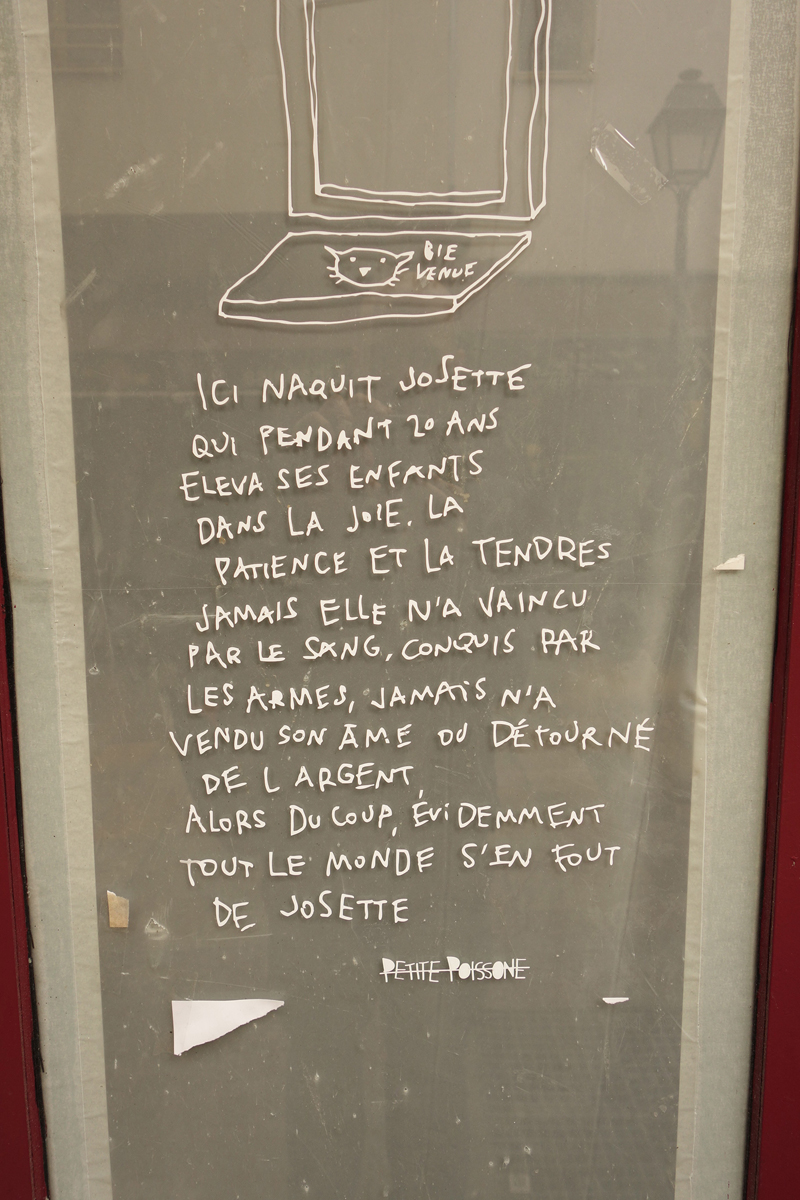 BIE
VENUE
ICI NAQUIT JOSETTE
QUI PENDANT 20 ANS
ELEVA SES ENFANTS
DANS LA JOIE. LA
PATIENCE ET LA TENDRES
JAMAIS ELLE N'A VAINCU
PAR LE SANG, CONQUIS PAR
LES ARMES, JAMAIS N'A
VENDU SON ÂME OU DÉTOURNÉ
DE L ARGENT,
ALORS DU COUP, ÉVIDEMMENT
TOUT LE MONDE S'EN FOUT
DE JOSETTE
PETITE POISSONE